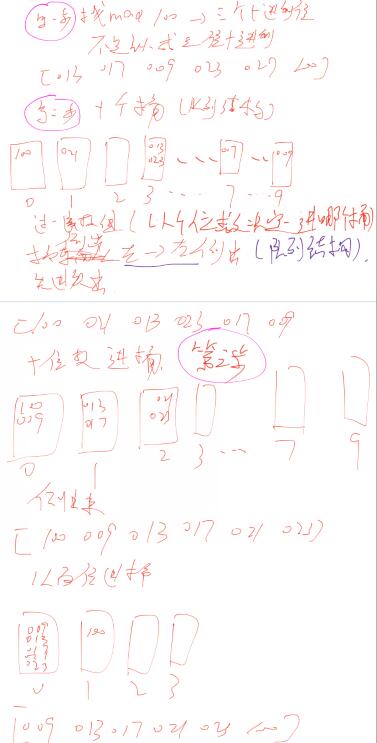 第一步 找max 100 → 三个十进制位
不足三位 补
[013 017 009 023 027 100]
第二步 十个桶 (队列结构)
100 021 013 023 … 017 … 009
0 1 2 3 … 7 … 9
过一遍数组 (以个位数决定进哪个桶)
左→右倒出 (队列结构).
先进先出
[100 021 013 023 017 009
十位数 进桶 第三步
100 009 013 017 021 023
0 1 2 3 … 7 9
倒出来
[100 009 013 017 021 023]
以百位进桶
009 013 017 021 023 100
0 1 2 3
[009 013 017 021 023 100]